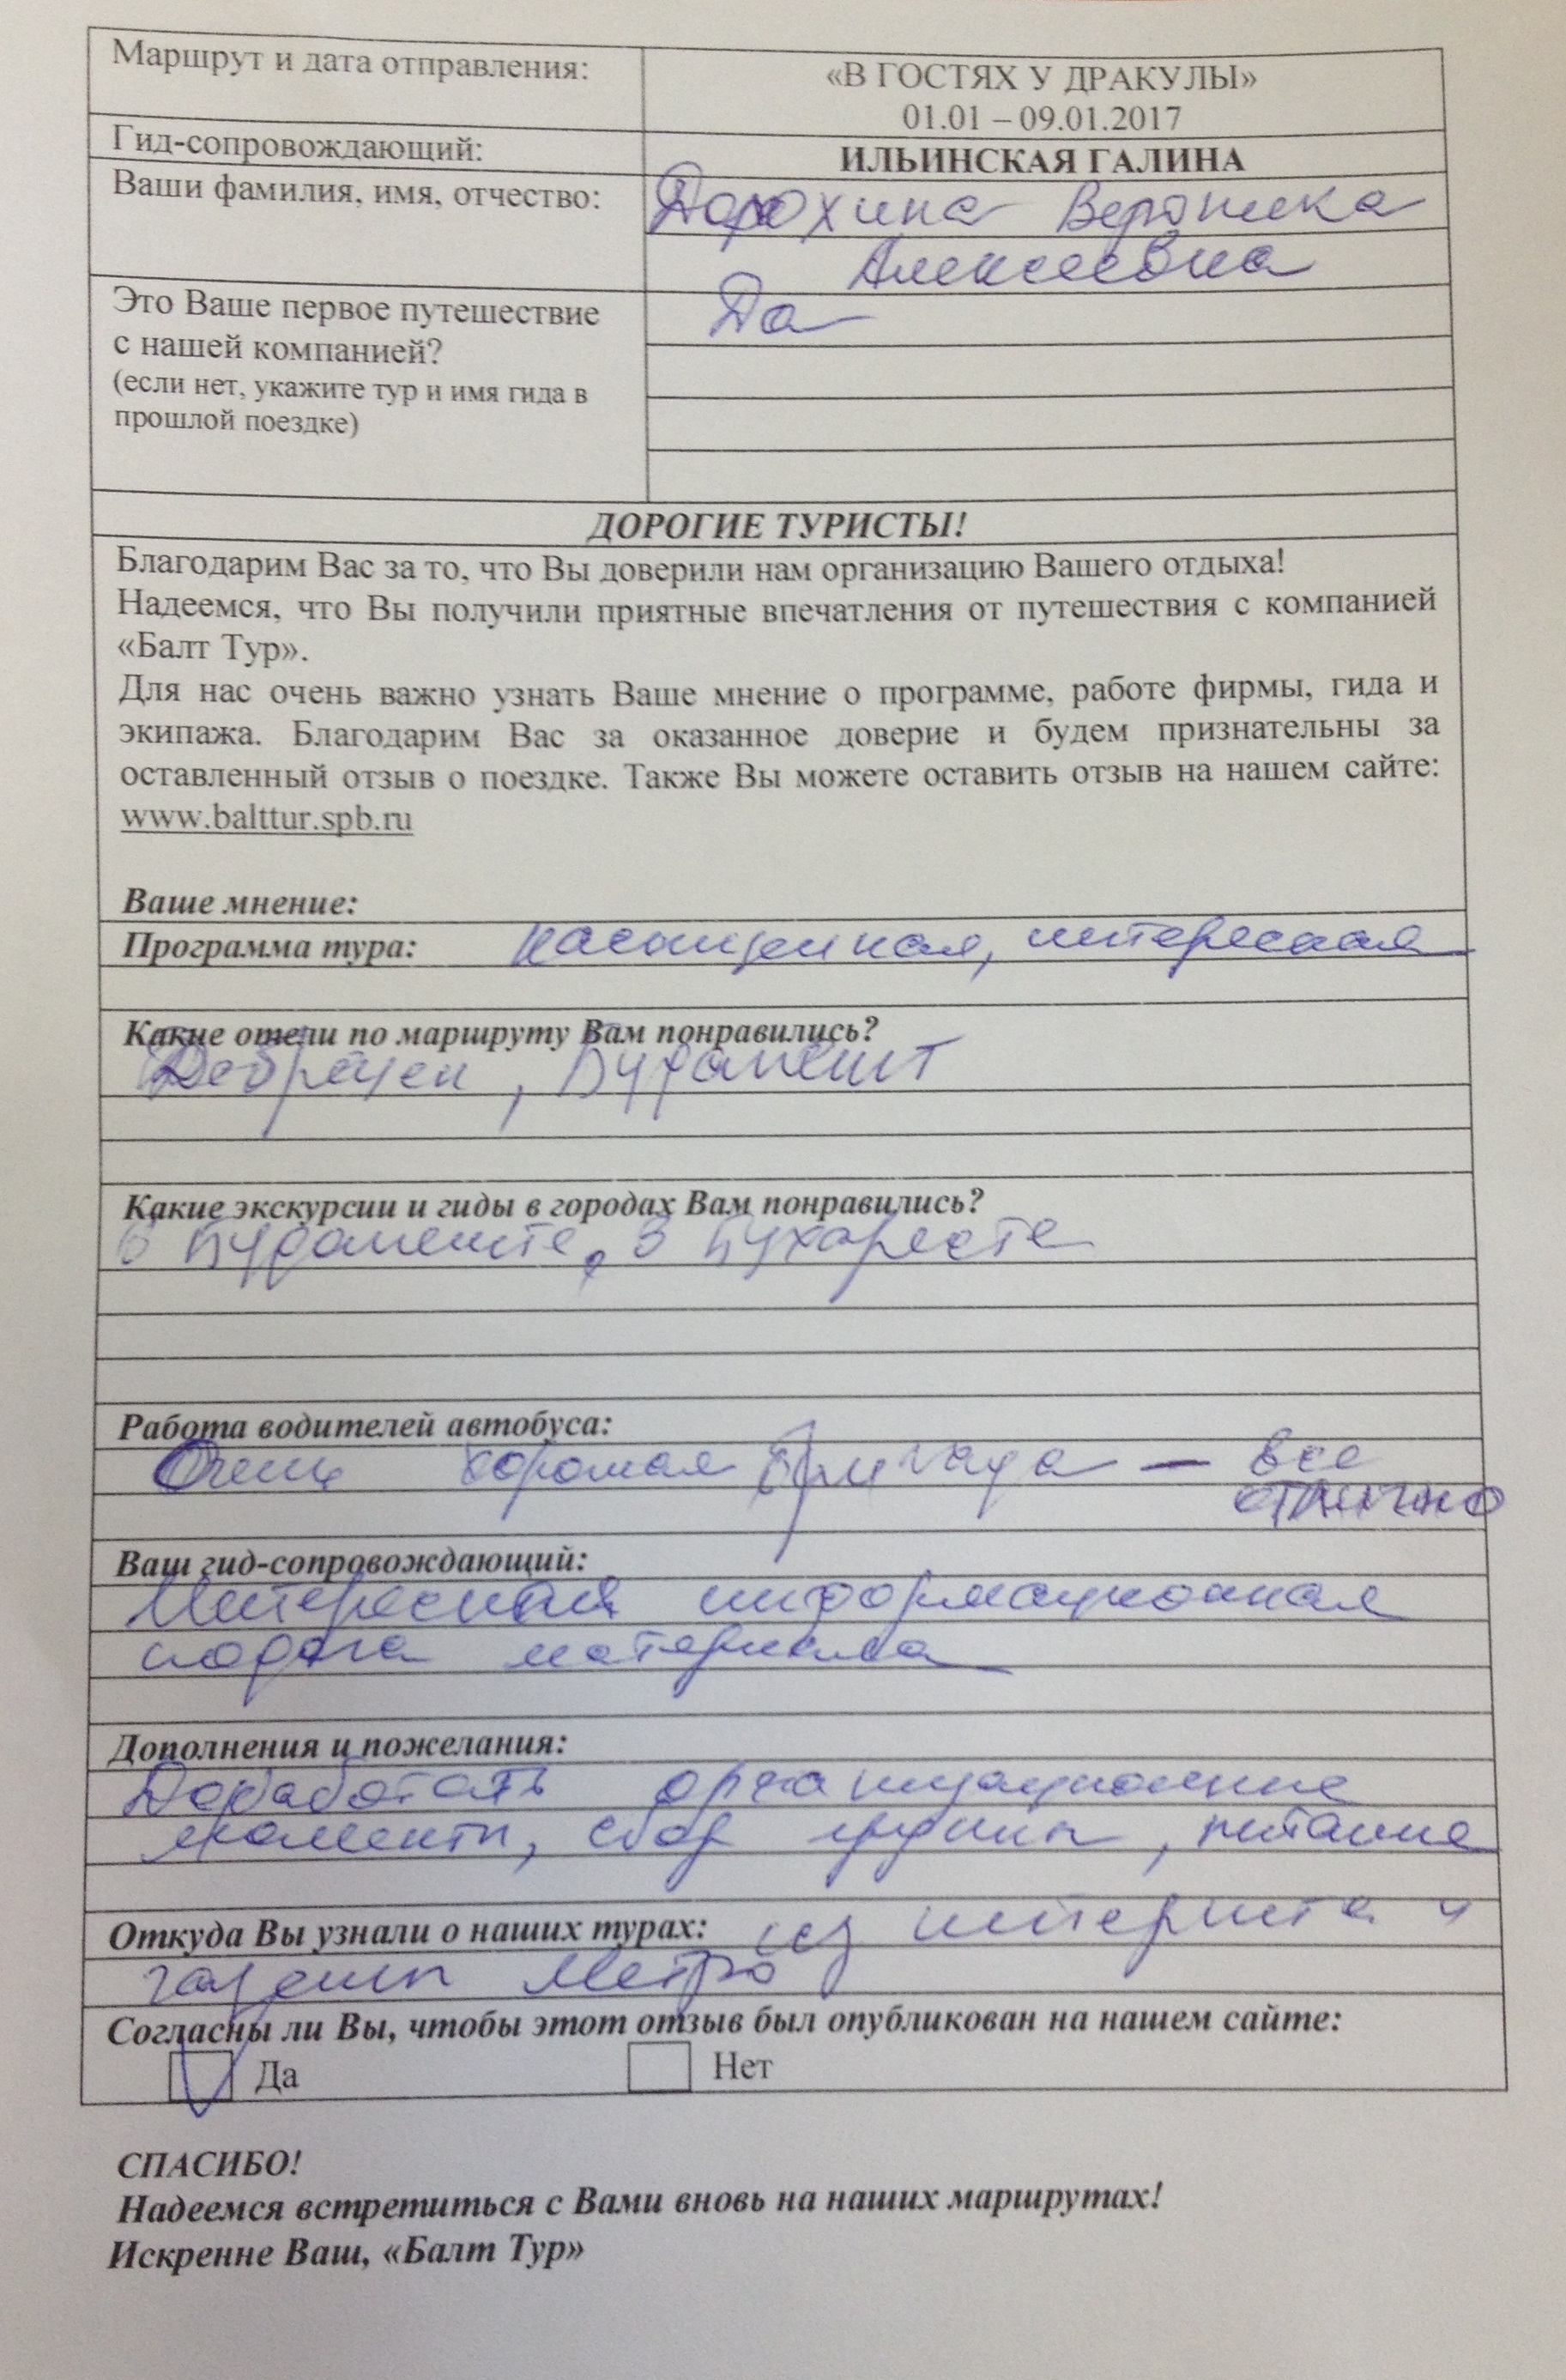 Маршрут и дата отправления:
«В ГОСТЯХ У ДРАКУЛЫ»
01.01 – 09.01.2017
Гид-сопровождающий:
ИЛЬИНСКАЯ ГАЛИНА
Ваши фамилия, имя, отчество:
Дорохина Вероника
Алексеевна
Это Ваше первое путешествие
с нашей компанией?
(если нет, укажите тур и имя гида в
прошлой поездке)
Да
ДОРОГИЕ ТУРИСТЫ!
Благодарим Вас за то, что Вы доверили нам организацию Вашего отдыха!
Надеемся, что Вы получили приятные впечатления от путешествия с компанией
«Балт Тур».
Для нас очень важно узнать Ваше мнение о программе, работе фирмы, гида и
экипажа. Благодарим Вас за оказанное доверие и будем признательны за
оставленный отзыв о поездке. Также Вы можете оставить отзыв на нашем сайте:
www.balttur.spb.ru
Ваше мнение:
Программа тура: насыщенная, интересная
Какие отели по маршруту Вам понравились?
Дебрецен, Будапешт
Какие экскурсии и гиды в городах Вам понравились?
В Будапеште, в Бухаресте
Работа водителей автобуса:
Очень хорошая бригада – все
отлично
Ваш гид-сопровождающий:
Интересная информационная
подача материала
Дополнения и пожелания:
Доработать организационные
моменты, сбор группы, питание
Откуда Вы узнали о наших турах: из интернета и
газеты Метро
Согласны ли Вы, чтобы этот отзыв был опубликован на нашем сайте:
Да Нет
СПАСИБО!
Надеемся встретиться с Вами вновь на наших маршрутах!
Искренне Ваш, «Балт Тур»